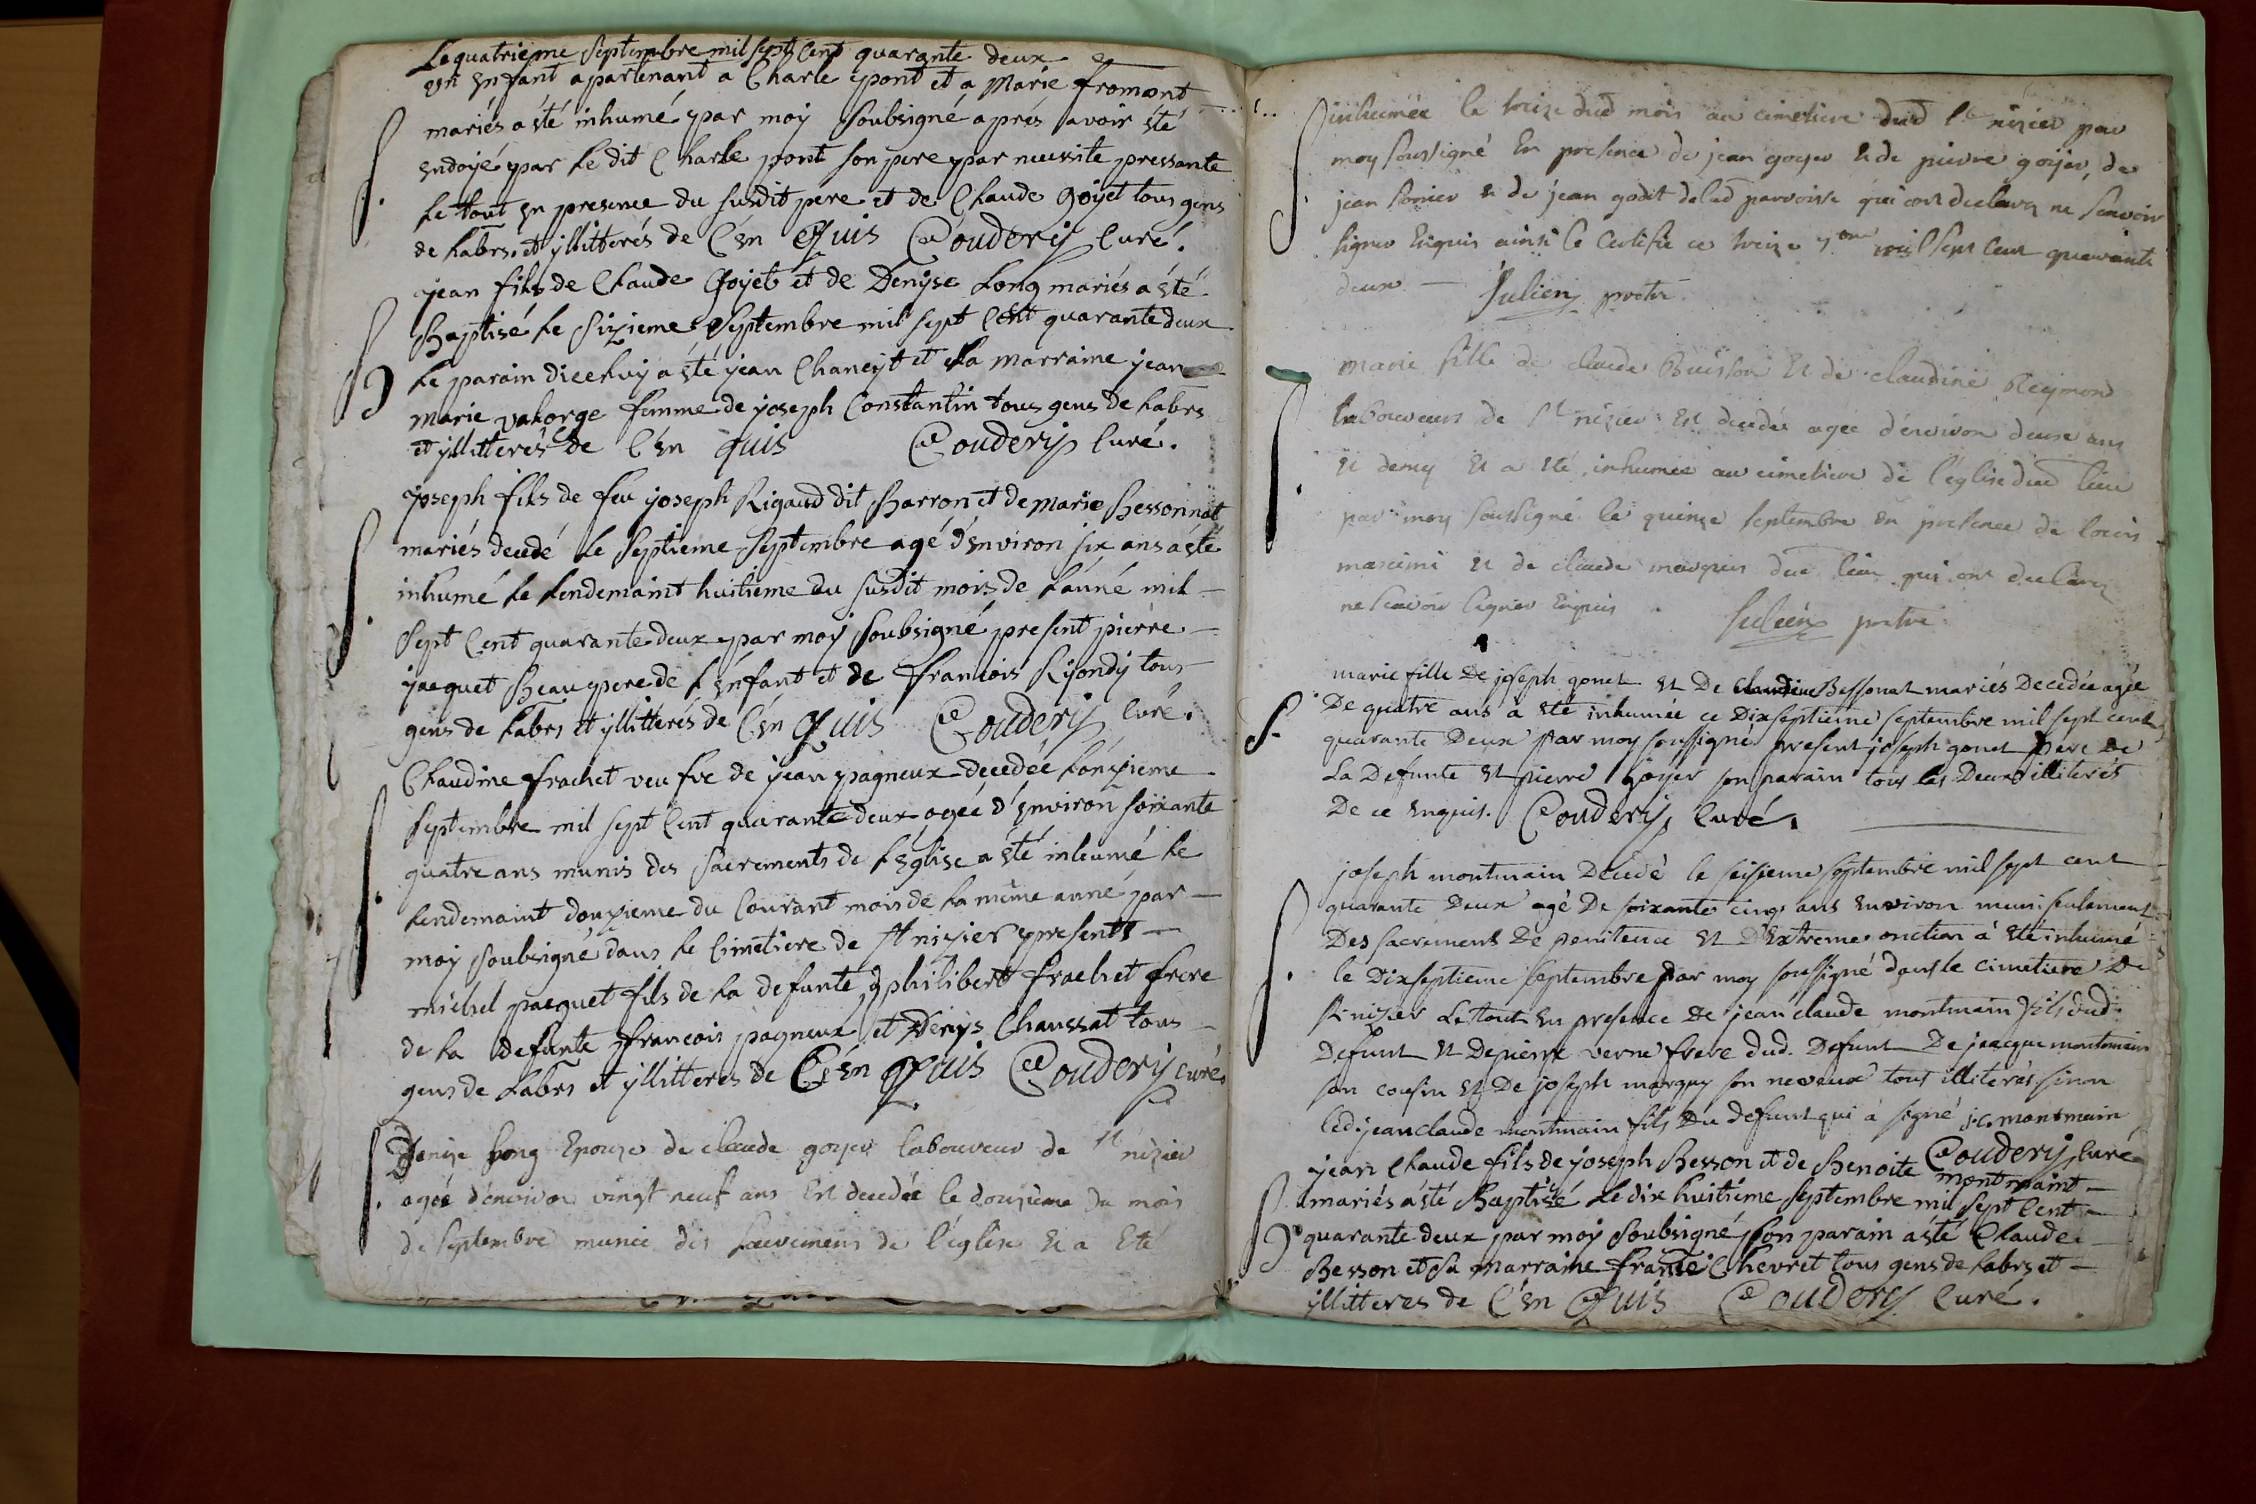 Le quatrieme septembre mil sept cent quarante deux
un enfant apartenant a Charle pont et a Marie fromont
mariés a été inhumé par moy soubsigné aprés avoir été
endoyé par le dit Charle pont son pere par necessite pressante
le tout en presence du susdit pere et de Claude Goyet tous gens
de labrs. et yllitterés de c'en quis Couderij curé.
jean fils de Claude Goyet et de Denyse Long mariés a été
Baptisé le sizieme septembre mil sept cent quarante deux
le parain dicehuy a été jean Chaneyt et la marraine jean
marie valorge femme de joseph Constantin tous gens de labrs
et yllitterés de c'en quis Couderij curé.
joseph fils de feu joseph Rigaud dit Barron et de Marie Bessonnat
mariés decedé le septieme septembre agé d'environ six ans a été
inhumé le lendemaint huitieme du susdit mois de l'anné mil
sept cent quarante deux par moy soubsigné present pierre
jacquet Beaupere de l'enfant et de francois Riondy tous
gens de labrs et yllitterés de c'en quis Couderij curé.
Claudine frachet veufve de jean pagneux decedée l'onzieme
septembre mil sept cent quarante deux agée d'environ soixante
quatre ans munis des sacrements de l'Eglise a été inhumé le
lendemaint douzieme du courant mois de la même anné par
moy soubsigné dans le cimetiere de st nizier presents
michel pacquet fils de la defunte, philibert frachet frere
de la defunte francois pagneux et Denys Chaussat tous
gens de labrs et yllitteres de c'en quis Couderij curé
Denise Long Epouze de claude goyet laboureur de st nizier
agée d'environ vingt neuf ans Est decedée le douzieme du mois
de septembre munie des sacremens de l'eglise et a Eté
inhumée le treize dud mois au cimetiere dud st nizier par
moy soussigné En presence de jean goyer et de pierre goyer, de
jean et de jean godet delad parroisse qui ont declarez ne scavoir
signer Enquis ainsi le Certifie ce treize 7bre mil sept cent quarante
deux — Julien pretre
marie fille de claude Buisson Et de claudine Reymond
laboureurs de st nizier Est decedée agée d'environ deux ans
et demy et a été inhumée au cimetiere de l'eglise dud lieu
par moy soussigné le quinze septembre en presence de louis
et de claude dud lieu qui ont declarez
ne scavoir signer Enquis Julien pretre
marie fille De joseph gonet et De claudine Bessonat mariés Decedée agée
De quatre ans a été inhumée ce Dixseptieme septembre mil sept cent
quarante Deux par moy soussigné present joseph gonet pere De
La Defunte et pierre goyer son parain tous les Deux illiterés
De ce enquis. Couderij curé.
joseph montmain Decedé le seisieme septembre mil sept cent
quarante Deux agé De soixante cinq ans environ muni seulement
Des sacrements De penitence et D'Extreme onction a été inhumé
le Dixseptieme septembre par moy soussigné dans le cimetiere De
St nizier Le tout en presence De jean claude montmain fils dud.
Defunt et De pierre verne frere dud. Defunt De jacque montmain
son cousin et De joseph marquy son neveux tous illiterés sinon
led. jean claude montmain fils Du defunt qui a signé j.c. montmain
Couderij curé
jean Claude fils de joseph Besson et de Benoite montmaint
mariés a été Baptisé le dix huitiéme septembre mil sept cent
quarante deux par moy soubsigné, son parain a été Claude
Besson et sa marraine Chevret tous gens de labrs et
yllitteres de c'en quis Couderij curé.